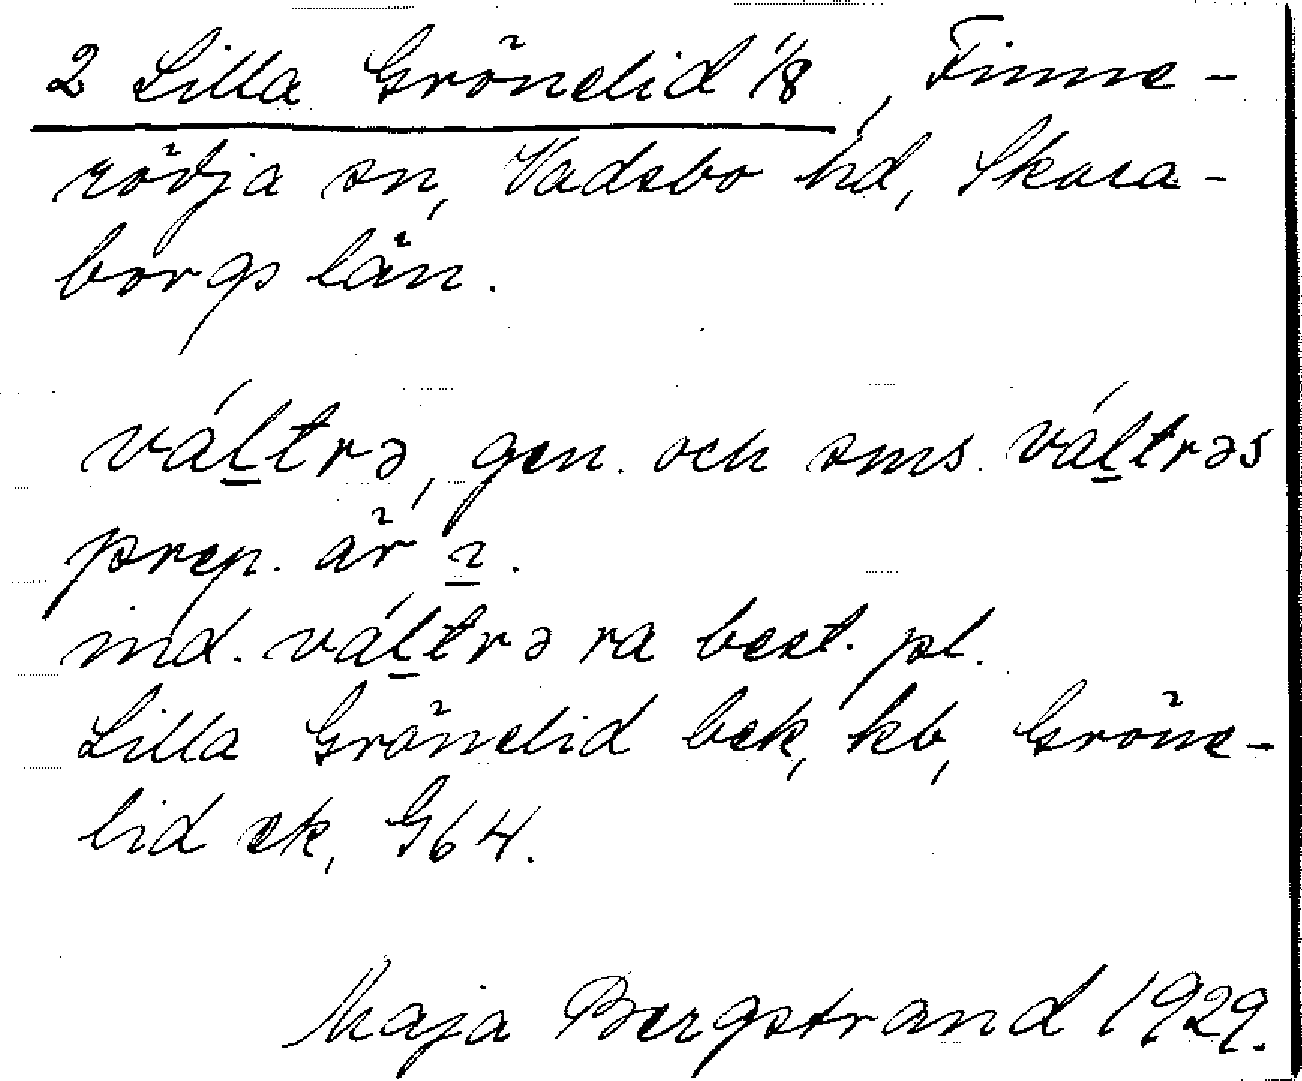 2 Lilla Grönelid 1/8, Finne-
rödja sn, Vadsbo hd, Skara-
borgs län.
váltrə, gen. och sms. váltrəs
prep. är ɪ.
ind. váltrə ra best. pl.
Lilla Grönelid bek, kb, Gröne-
lid ek, G64.
Maja Bergstrand 1929.